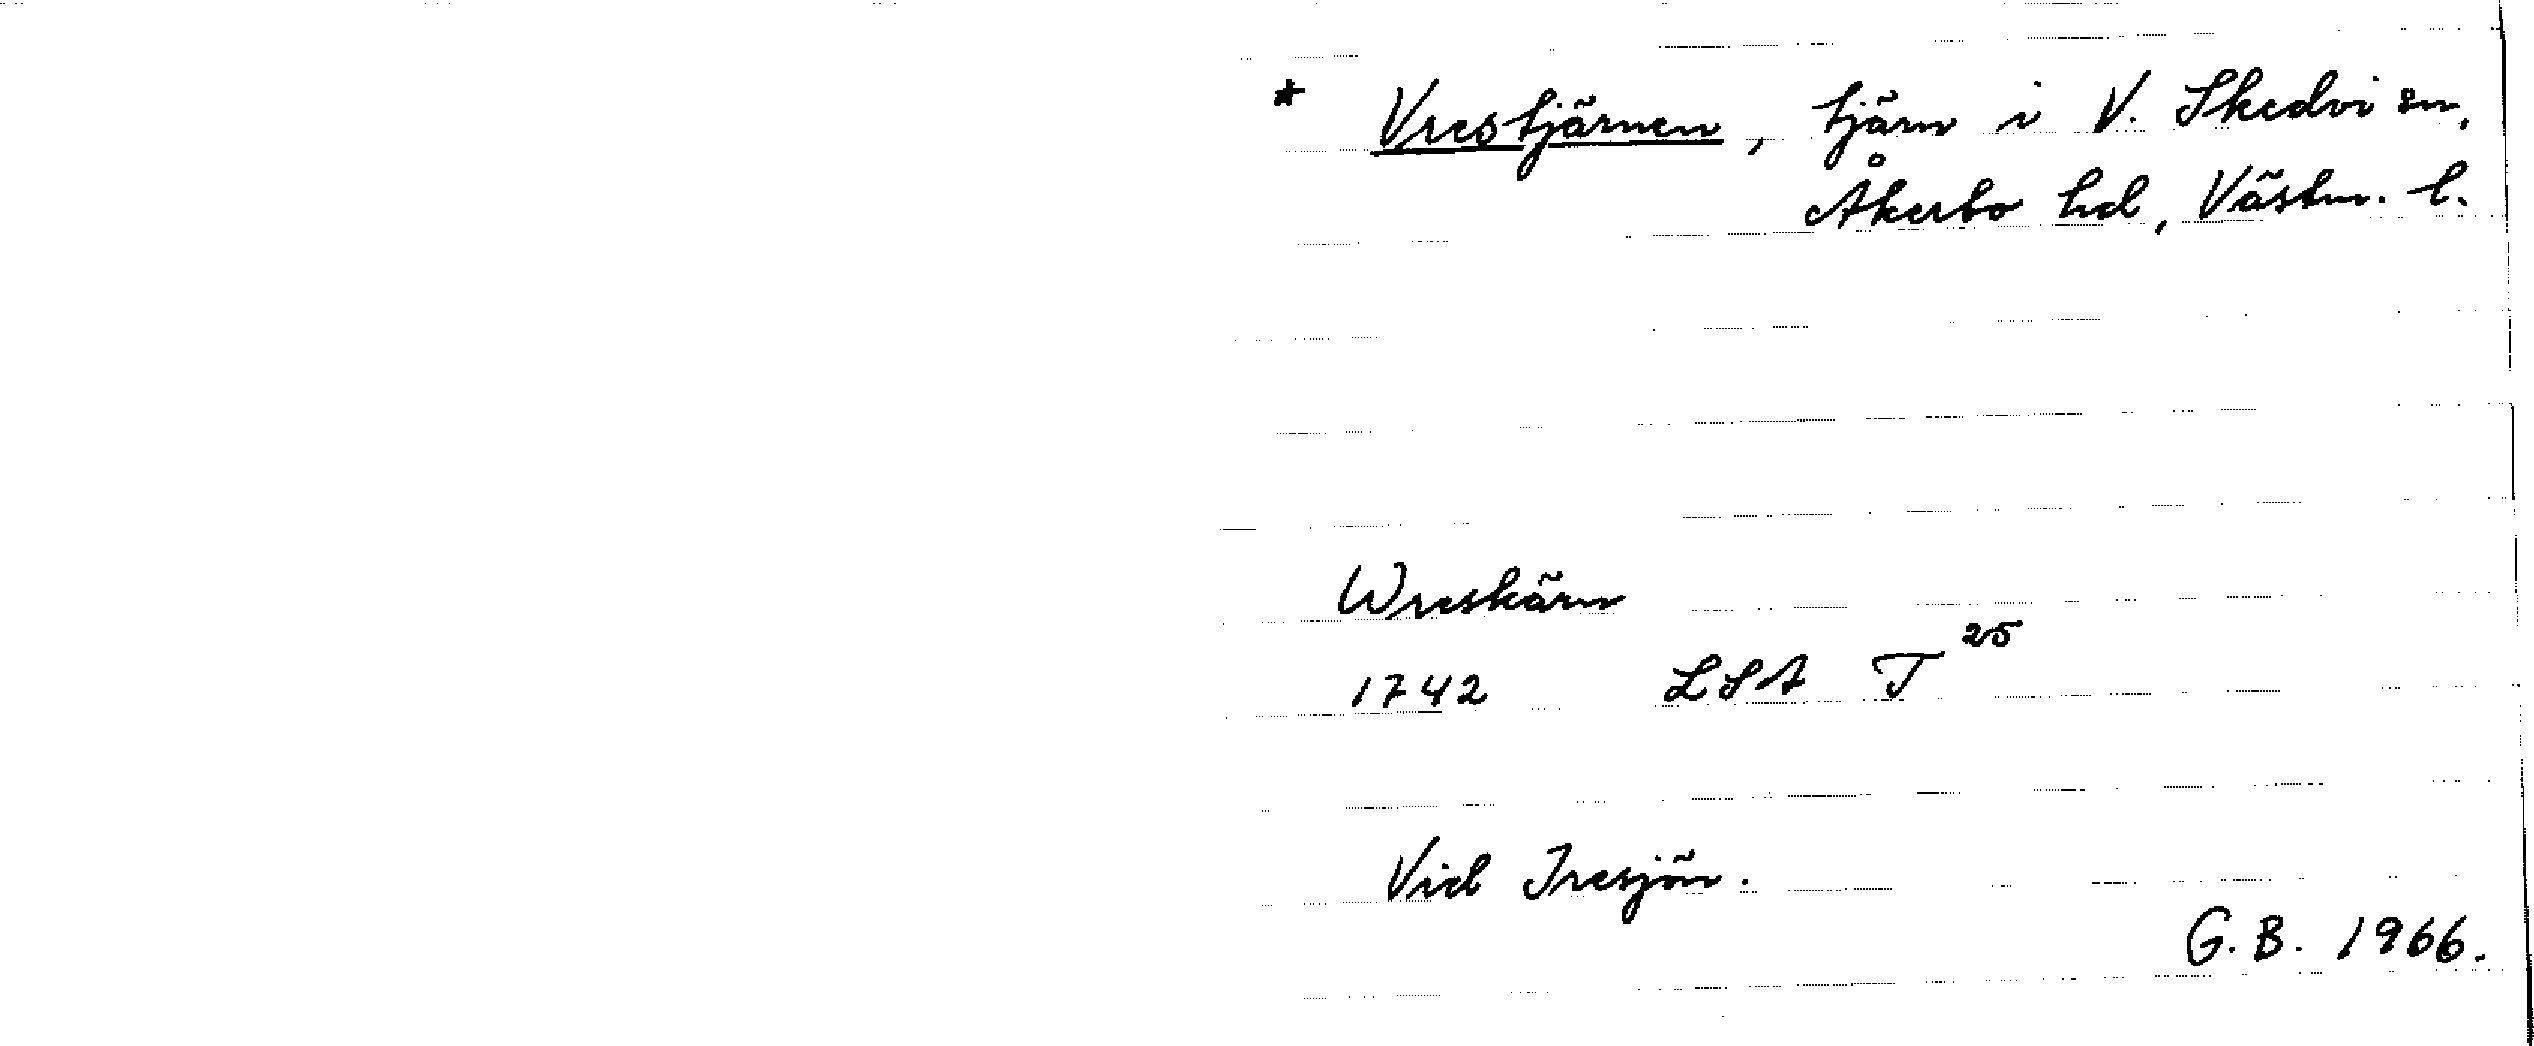 * Vrestjärnen, tjärn i V. Skedvi sn,
Åkerbo hd, Västm. l.
Wreskärn
1742 LSA T 25
Vid Iresjön.
G. B. 1966.